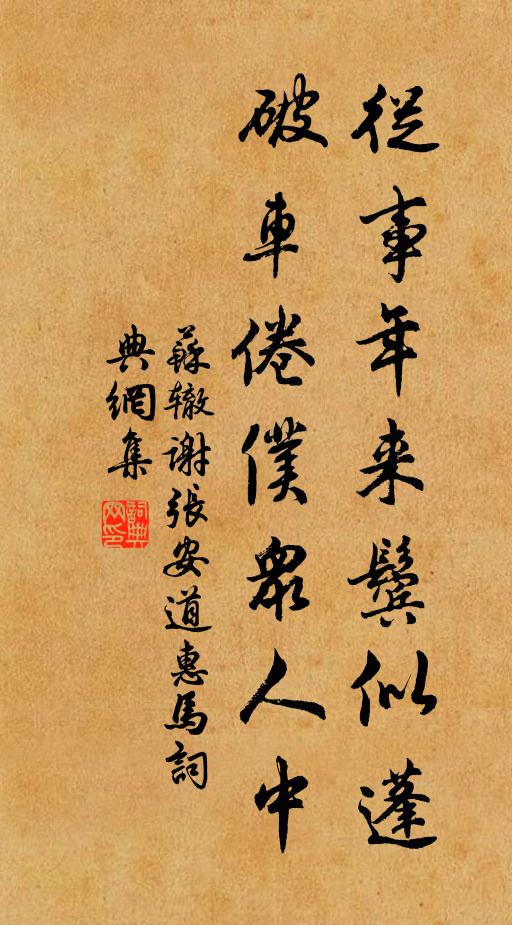 從事年来鬢似蓬
破車倦僕眾人中
蘇辙謝張安道惠馬詞
典網集
詞典
网印